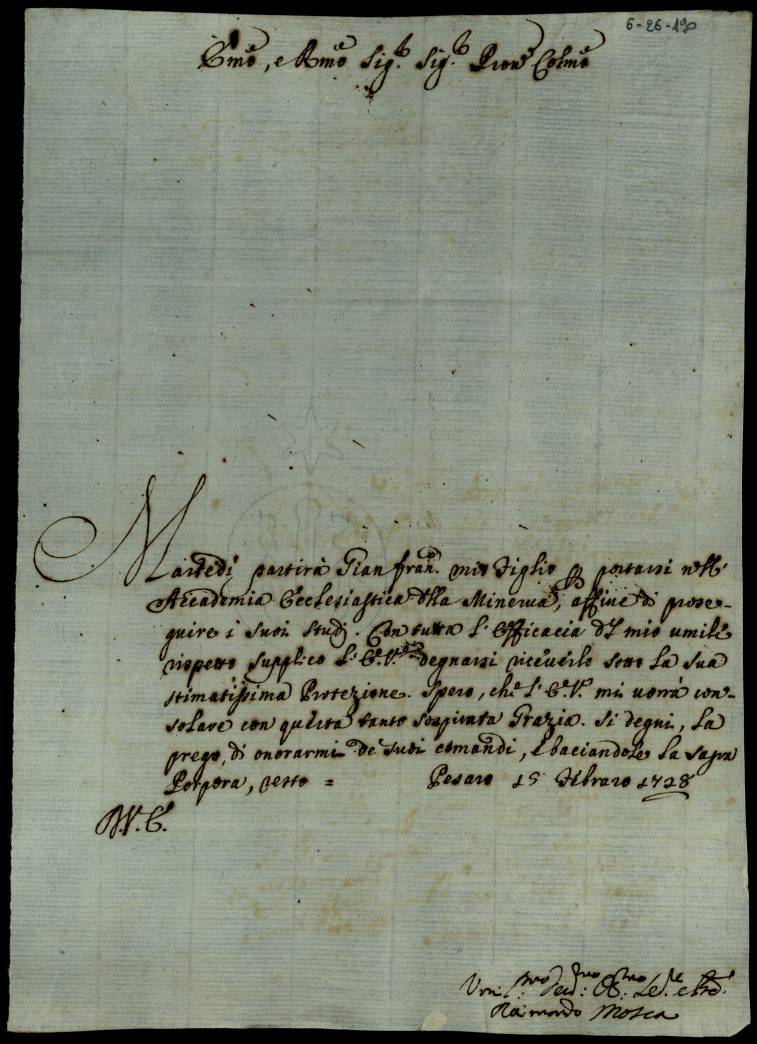 6-26-190
Emo, e Rmo Sig.r Sig.r Pron Colmo
Martedì partirà Gian Fran.co mio Figlio p portarsi nell'
Accademia Ecclesiastica della Minerva, affine di prose-
guire i suoi studj. Con tutta l'Efficacia del mio umile
rispetto supplico l'E.V. degnarsi riceverlo sotto la sua
stimatissima Protezione. Spero, che l'E.V. mi vorrà con-
solare con questa tanto sospirata Grazia. Si degni, la
prego, di onorarmi de suoi comandi, e baciandole la sagra
Porpora, resto = Pesaro 15 Febraro 1728
D.V.E.
Um: Ser: Obb:
Raimondo Mosca